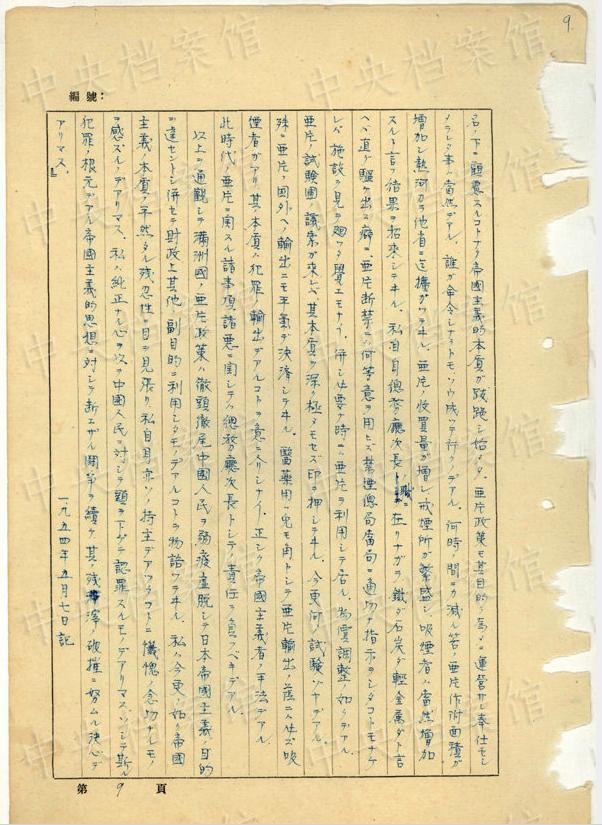 9.
編號：
名ノ下ニ顧慮スルコトナク帝国主義的本質ガ跋跳シ始メタ。亜片政策モ其目的ノ為メニ運営サレ奉仕セシ
メラレシ事ハ当然デアル。誰ガ命令シナクトモソウ成ッテ行クノデアル。何時ノ間ニカ減ル筈ノ亜片作附面積ガ
増加シ熱河カラ他省ニ迄攜ガッテキル。亜片ノ收買量ガ増シ戒煙所ガ繁盛シ吸煙者ハ当然増加
スルト言フ結果ヲ招来シテキル。私自身總務廳次長ノ職ニ在リナガラ鐵ダ石炭ダ軽金属ダト言
ヘバ直グ驅ケ出ス癖ニ、亜片断禁ニハ何等意ヲ用ヒズ禁煙總局当局ニ適切ナ指示ヲシタコトモナケ
レバ施設ヲ見テ廻ッタ覺エモナイ。併シ必要ナ時ニハ亜片ヲ利用シテ居ル。物價調整ノ如クデアル。
亜片ノ試験圃ノ議案ガ来レバ其本質ヲ深ク極メモセズ印ヲ押シテキル。今更何ノ試験ゾヤデアル。
殊ニ亜片ノ国外ヘノ輸出ニモ平氣デ決済シテキル。醫薬用ハ兎モ角トシテ亜片輸出ノ蔭ニハ必ズ吸
煙者ガアリ其本質ハ犯罪ノ輸出デアルコトヲ意ニ介シナイ。正シク帝国主義者ノ手法デアル。
此時代ノ亜片ニ関スル諸事項諸悪ニ関シテハ總務廳次長トシテノ責任ヲ負フベキデアル。
以上ヲ通観シテ満洲国ノ亜片政策ハ徹頭徹尾中国人民ヲ弱疲虚脱シテ日本帝国主義ノ目的
ニ達セントシ併セテ財政上其他ノ副目的ニ利用シタモノデアルコトヲ物語ッテキル。私ハ今更ノ如ク帝国
主義ノ本質ノ平然タル残忍性ニ目ヲ見張リ私自身亦ソノ持主デアッタコトニ懺悔ノ念切ナルモノ
ヲ感ズルノデアリマス。私ハ純正ナル心ヲ以テ中国人民ニ対シテ頭ヲ下ゲテ認罪スルモノデアリマス。ソシテ斯ル
犯罪ノ根元デアル帝国主義的思想ニ対シテ断エザル闘争ヲ續ケ、其ノ残滓ノ破摧ニ努ムル決心デ
アリマス。
一九五四年五月七日記
第 9 頁
中央档案馆